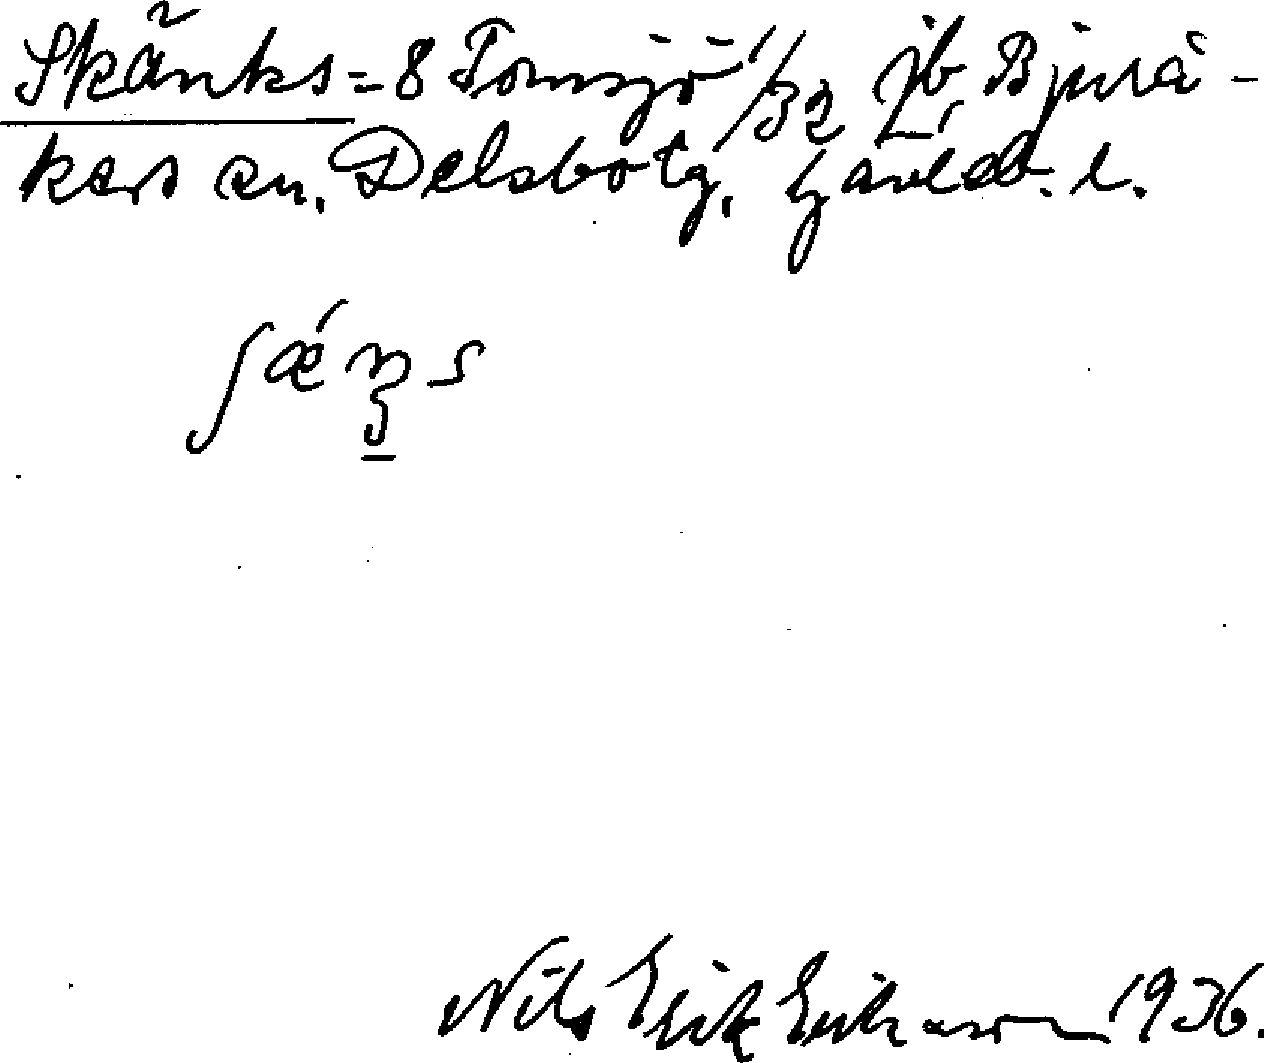 Skänks = 8 Tomsjö 1/32 jb Bjurå-
kers sn. Delsbo tg. Gävleb. l.
Nils Erik Eriksson 1936.